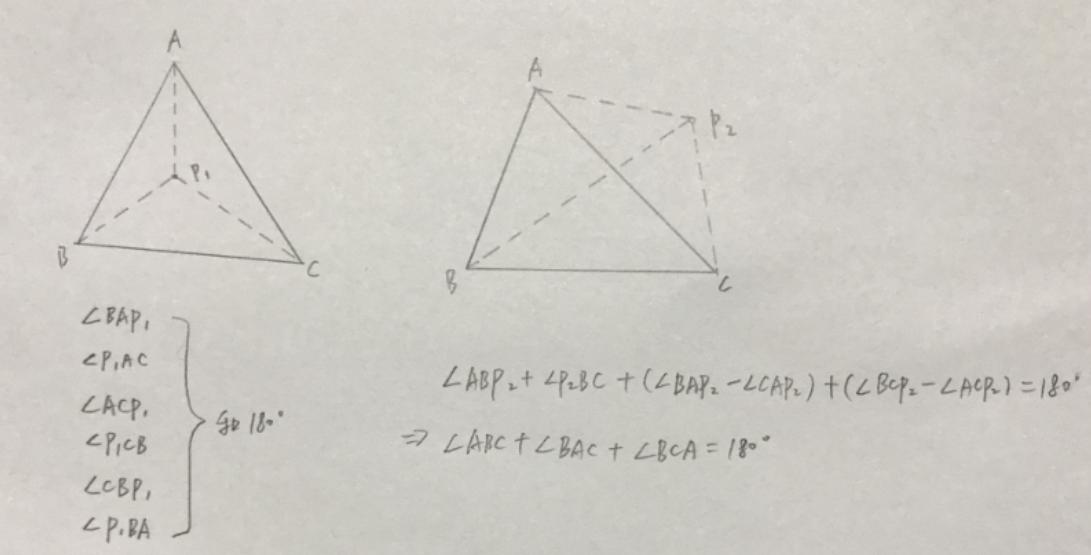 A
P₁
B
C
A
P₂
B
C
∠BAP₁
∠P₁AC
∠ACP₁
∠P₁CB
∠CBP₁
∠P₁BA
180°
∠ABP₂+∠P₂BC+(∠BAP₂-∠CAP₂)+(∠BCP₂-∠ACP₂)=180°
⇒ ∠ABC+∠BAC+∠BCA=180°